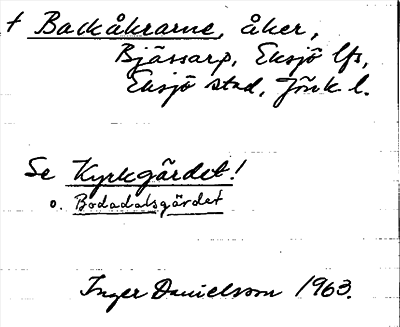 † Backåkrarne, åker,
Bjässarp, Eksjö lfs,
Eksjö stad, Jönk l.
Se Kyrkgärdet!
o. Bodadalsgärdet
Inger Danielsson 1963.